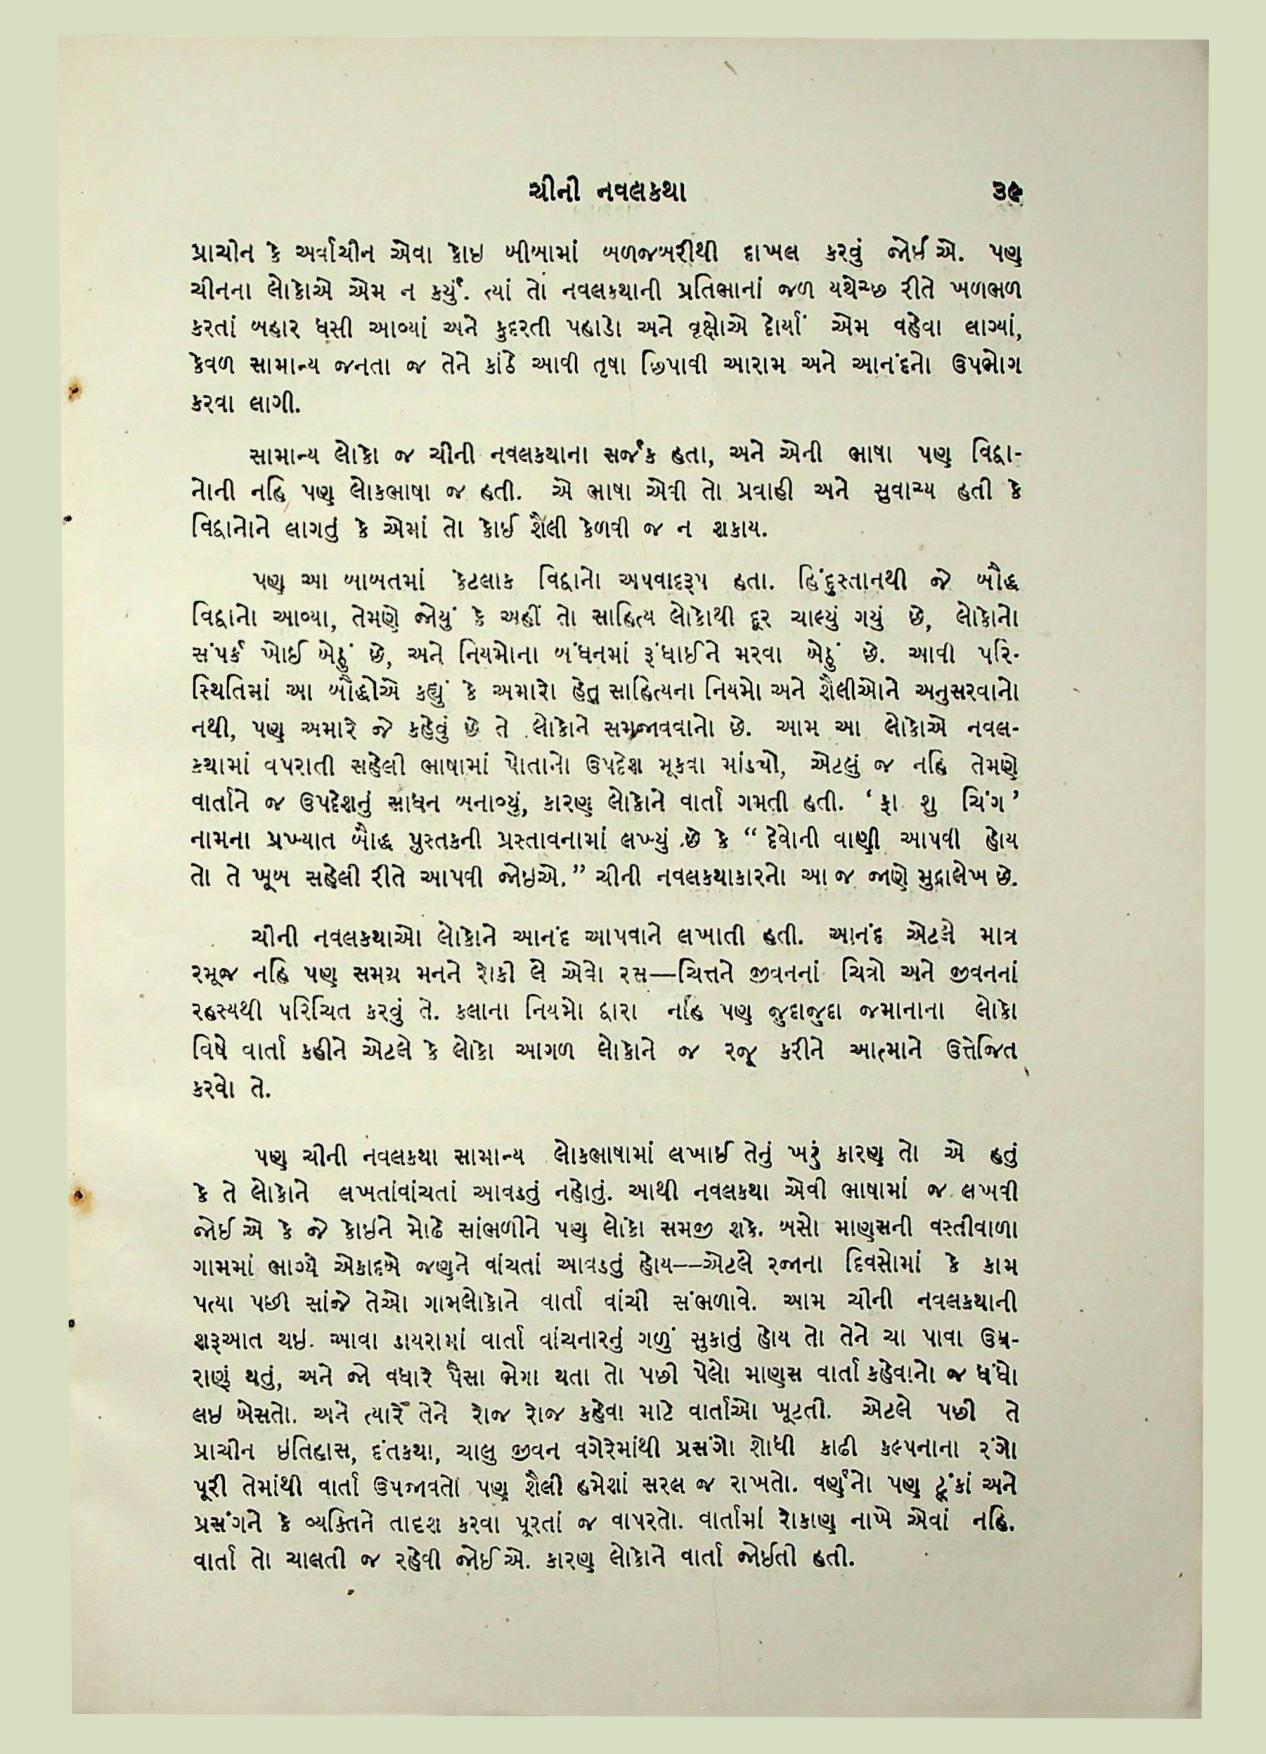 ચીની નવલકથા ૩૯
પ્રાચીન કે અર્વાચીન એવા કોઇ બીબામાં બળજબરીથી દાખલ કરવું જોઈ એ. પણ
ચીનના લોકોએ એમ ન કર્યું. ત્યાં તો નવલકથાની પ્રતિભાનાં જળ યથેચ્છ રીતે ખળભળ
કરતાં બહાર ધસી આવ્યાં અને કુદરતી પહાડો અને વૃક્ષોએ દોર્યાં એમ વહેવા લાગ્યાં,
કેવળ સામાન્ય જનતા જ તેને કાંઠે આવી તૃષા છિપાવી આરામ અને આનંદનો ઉપભોગ
કરવા લાગી.
સામાન્ય લોકો જ ચીની નવલકથાના સર્જક હતા, અને એની ભાષા પણ વિદ્વા-
નોની નહિ પણ લોકભાષા જ હતી. એ ભાષા એવી તો પ્રવાહી અને સુવાચ્ય હતી કે
વિદ્વાનોને લાગતું કે એમાં તો કોઈ શૈલી કેળવી જ ન શકાય.
પણ આ બાબતમાં કેટલાક વિદ્વાનો અપવાદરૂપ હતા. હિંદુસ્તાનથી જે બૌદ્ધ
વિદ્વાનો આવ્યા, તેમણે જોયું કે અહીં તો સાહિત્ય લોકોથી દૂર ચાલ્યું ગયું છે, લોકોનો
સંપર્ક ખોઈ બેઠું છે, અને નિયમોના બંધનમાં રૂંધાઈને મરવા બેઠું છે. આવી પરિ-
સ્થિતિમાં આ બૌદ્ધોએ કહ્યું કે અમારો હેતુ સાહિત્યના નિયમો અને શૈલીઓને અનુસરવાનો
નથી, પણ અમારે જે કહેવું છે તે લોકોને સમજાવવાનો છે. આમ આ લોકોએ નવલ-
કથામાં વપરાતી સહેલી ભાષામાં પોતાનો ઉપદેશ મૂકવા માંડ્યો, એટલું જ નહિ તેમણે
વાર્તાને જ ઉપદેશનું સાધન બનાવ્યું, કારણ લોકોને વાર્તા ગમતી હતી. ‘ ફા શુ ચિંગ ’
નામના પ્રખ્યાત બૌદ્ધ પુસ્તકની પ્રસ્તાવનામાં લખ્યું છે કે “ દેવોની વાણી આપવી હોય
તો તે ખૂબ સહેલી રીતે આપવી જોઇએ. ” ચીની નવલકથાકારનો આ જ જાણે મુદ્રાલેખ છે.
ચીની નવલકથાઓ લોકોને આનંદ આપવાને લખાતી હતી. આનંદ એટલે માત્ર
રમૂજ નહિ પણ સમગ્ર મનને રોકી લે એવો રસ—ચિત્તને જીવનનાં ચિત્રો અને જીવનનાં
રહસ્યથી પરિચિત કરવું તે. કલાના નિયમો દ્વારા નહિ પણ જુદાજુદા જમાનાના લોકો
વિષે વાર્તા કહીને એટલે કે લોકો આગળ લોકોને જ રજૂ કરીને આત્માને ઉત્તેજિત
કરવો તે.
પણ ચીની નવલકથા સામાન્ય લોકભાષામાં લખાઈ તેનું ખરું કારણ તો એ હતું
કે તે લોકોને લખતાંવાંચતાં આવડતું નહોતું. આથી નવલકથા એવી ભાષામાં જ લખવી
જોઈ એ કે જે કોઇને મોઢે સાંભળીને પણ લોકો સમજી શકે. બસો માણસની વસ્તીવાળા
ગામમાં ભાગ્યે એકાદબે જણને વાંચતાં આવડતું હોય——એટલે રજાના દિવસોમાં કે કામ
પત્યા પછી સાંજે તેઓ ગામલોકોને વાર્તા વાંચી સંભળાવે. આમ ચીની નવલકથાની
શરૂઆત થઇ. આવા ડાયરામાં વાર્તા વાંચનારનું ગળું સુકાતું હોય તો તેને ચા પાવા ઉઘ-
રાણું થતું, અને જો વધારે પૈસા ભેગા થતા તો પછી પેલો માણસ વાર્તા કહેવાનો જ ધંધો
લઇ બેસતો. અને ત્યારે તેને રોજ રોજ કહેવા માટે વાર્તાઓ ખૂટતી. એટલે પછી તે
પ્રાચીન ઇતિહાસ, દંતકથા, ચાલુ જીવન વગેરેમાંથી પ્રસંગો શોધી કાઢી કલ્પનાના રંગો
પૂરી તેમાંથી વાર્તા ઉપજાવતો પણ શૈલી હમેશાં સરલ જ રાખતો. વર્ણનો પણ ટૂંકાં અને
પ્રસંગને કે વ્યક્તિને તાદશ કરવા પૂરતાં જ વાપરતો. વાર્તામાં રોકાણ નાખે એવાં નહિ.
વાર્તા તો ચાલતી જ રહેવી જોઈ એ. કારણ લોકોને વાર્તા જોઇતી હતી.